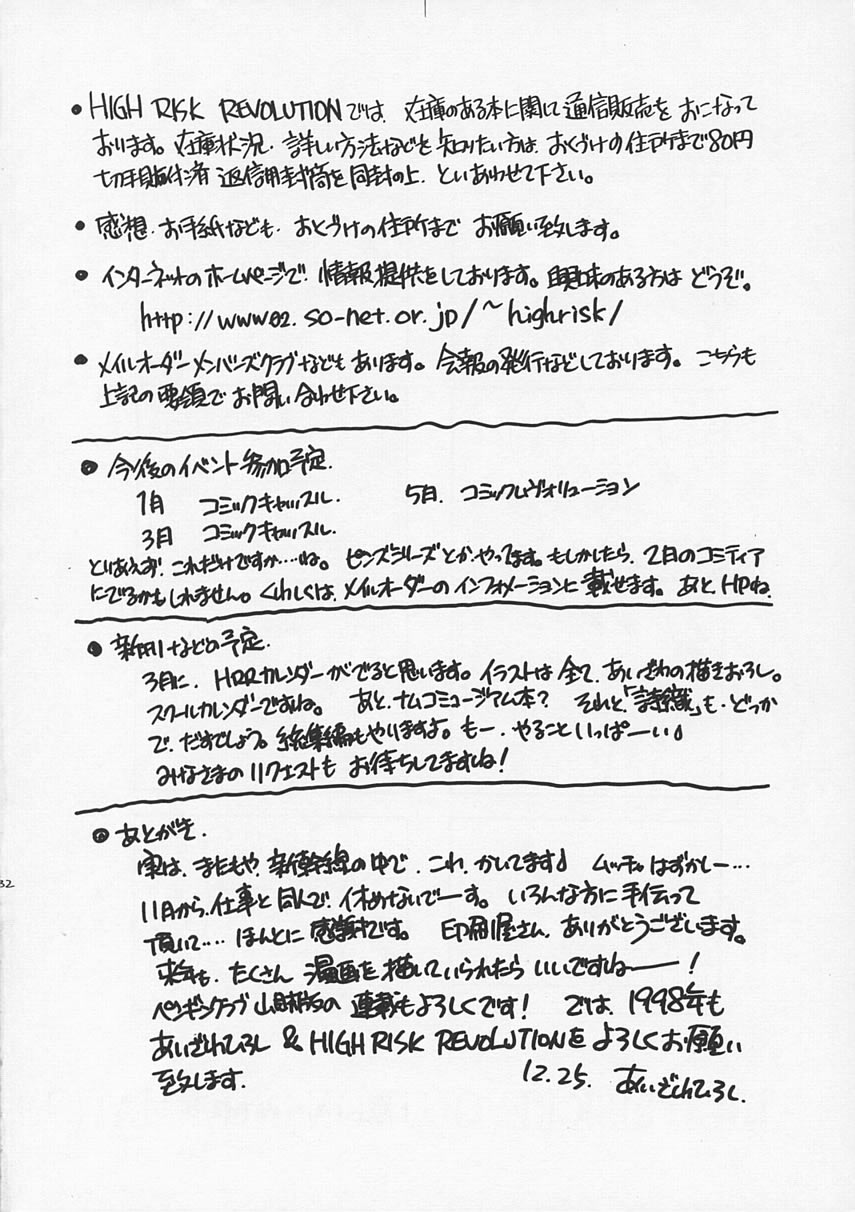 • HIGH RISK REVOLUTIONでは、在庫のある本に関して通信販売をおこなって
おります。在庫状況、詳しい方法などを知りたい方は、おくづけの住所まで80円
切手貼付済 返信用封筒を同封の上、といあわせて下さい。
• 感想・お手紙なども、おくづけの住所まで お願い致します。
• インターネットのホームページで 情報提供をしております。興味のある方は どうぞ。
http://www02.so-net.or.jp/~highrisk/
• メイルオーダーメンバーズクラブなどもあります。会報の発行などしております。こちらも
上記の要領でお問い合わせ下さい。
• 今後のイベント参加予定.
1月 コミックキャッスル. 5月. コミックレヴォリューション
3月 コミックキャッスル.
とりあえず、これだけですか……ね。ピンズシリーズとか、やってます。もしかしたら、2月のコミティア
にでるかもしれません。くわしくは、メイルオーダーのインフォメーションに載せます。あと、HPね.
• 新刊などの予定.
3月に、HRRカレンダーがでると思います。イラストは全て、あいざわの描きおろし。
スクールカレンダーですね。 あと、ナムコミュージアム本? それと、「詩織」も、どっか
で、だすでしょう。総集編もやりますよ。もー、やること いっぱーい♪
みなさまのリクエストも お待ちしてますね!
• あとがき.
実は、またもや、新幹線の中で、これ、かいてます♪ ムッチャはずかしー…
11月から、仕事と同人で、休めないでーす。いろんな方に手伝って
頂いて…… ほんとに感謝です。 印刷屋さん、ありがとうございます。
来年も、たくさん 漫画を描いていられたら いいですねー!
ペンギンクラブ山賊版の 連載もよろしくです! では、1998年も
あいざわひろし & HIGH RISK REVOLUTIONを よろしくお願い
致します. 12.25. あいざわひろし.
32